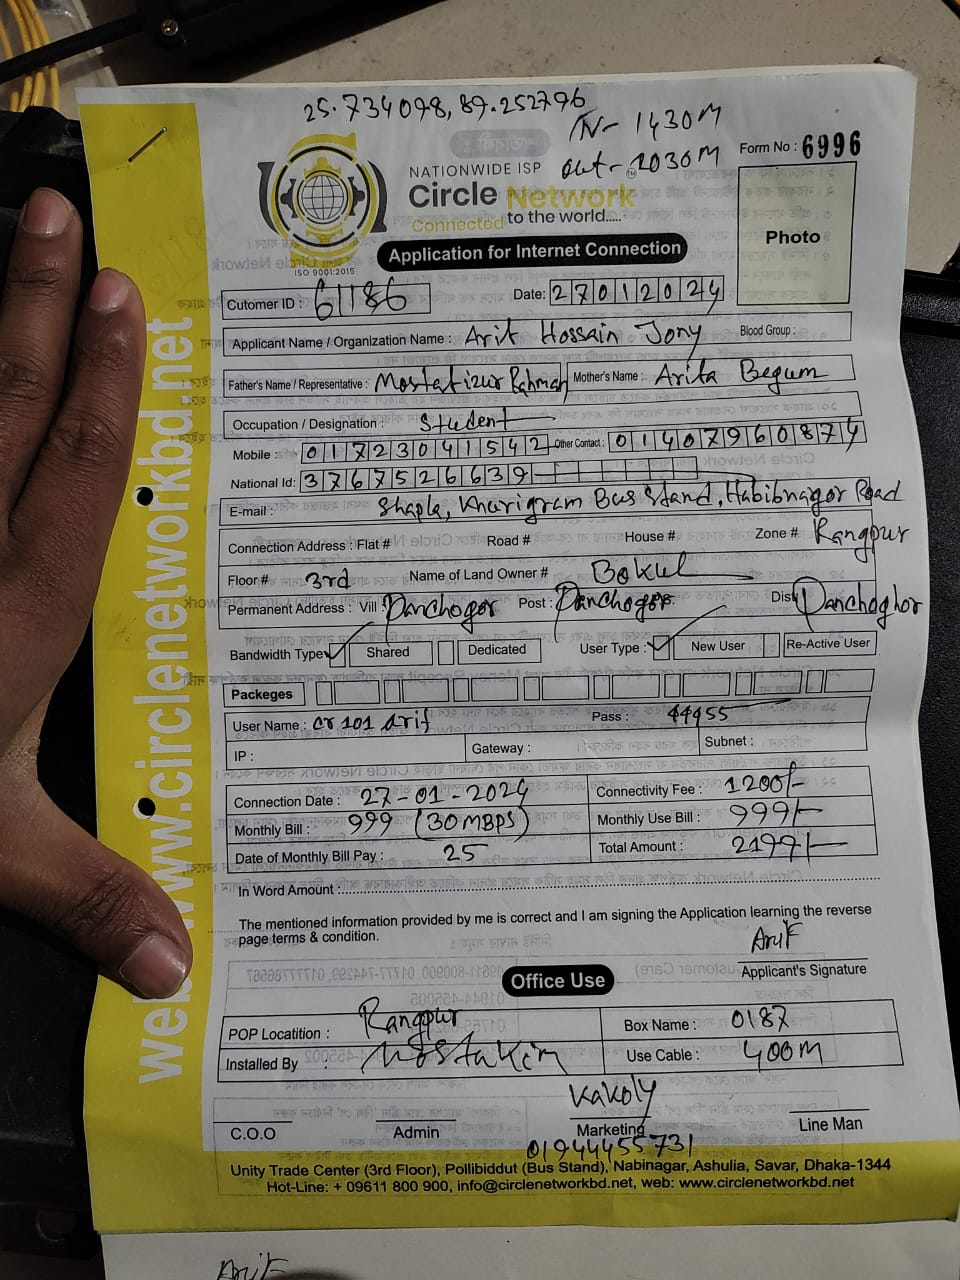 25.734098, 89.252796
IN- 1430M
out- 1030M
Form No : 6996
NATIONWIDE ISP
Circle Network
Connected to the world.....
ISO 9001:2015
Photo
Application for Internet Connection
Cutomer ID : 61186
Date: 27012024
Applicant Name / Organization Name : Arif Hossain Jony Blood Group :
Father's Name / Representative : Mostafizur Rahman Mother's Name : Arifa Begum
Occupation / Designation : Student
Mobile : 01723041542 Other Contact : 01407960874
National Id: 3767526639
E-mail : Shapla, Khurigram Bus Stand, Habibnagor Road
Connection Address : Flat # Road # House # Zone # Rangpur
Floor # 3rd Name of Land Owner # Bokul
Permanent Address : Vill : Panchogor Post : Panchogor Dist Panchoghor
Bandwidth Type Shared Dedicated User Type : New User Re-Active User
Packeges
User Name : cr101 arif Pass : 44455
IP : Gateway : Subnet :
Connection Date : 27-01-2024 Connectivity Fee : 1200/-
Monthly Bill : 999 (30MBPS) Monthly Use Bill : 999/-
Date of Monthly Bill Pay : 25 Total Amount : 2199/-
In Word Amount :
The mentioned information provided by me is correct and I am signing the Application learning the reverse
page terms & condition.
Arif
Applicant's Signature
Office Use
POP Locatition : Rangpur Box Name : 0187
Installed By : Mostakim Use Cable : 400M
Kakoly
C.O.O Admin Marketing Line Man
01944455731
Unity Trade Center (3rd Floor), Pollibiddut (Bus Stand), Nabinagar, Ashulia, Savar, Dhaka-1344
Hot-Line: + 09611 800 900, info@circlenetworkbd.net, web: www.circlenetworkbd.net
web: www.circlenetworkbd.net
Arif